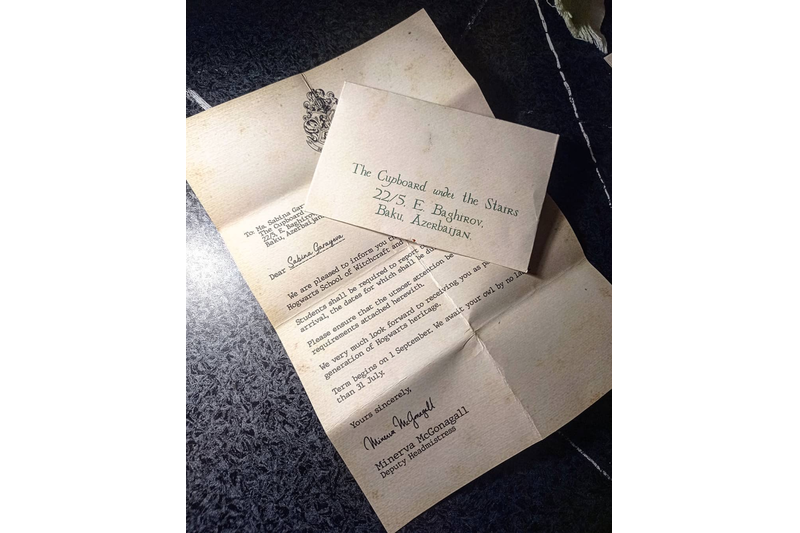 The Cupboard under the Stairs
22/5, E. Baghirov,
Baku, Azerbaijan.
To: Ms. Sabina
The Cupboard
22/5, E. Baghirov
Baku, Azerbaijan
Dear Sabina Garayeva
We are pleased to inform you
Hogwarts School of Witchcraft and
Students shall be required to report
arrival, the dates for which shall be
Please ensure that the utmost attention be
requirements attached herewith.
We very much look forward to receiving you as
generation of Hogwarts heritage.
Term begins on 1 September. We await your owl by no
than 31 July.
Yours sincerely,
Minerva McGonagall
Minerva McGonagall
Deputy Headmistress